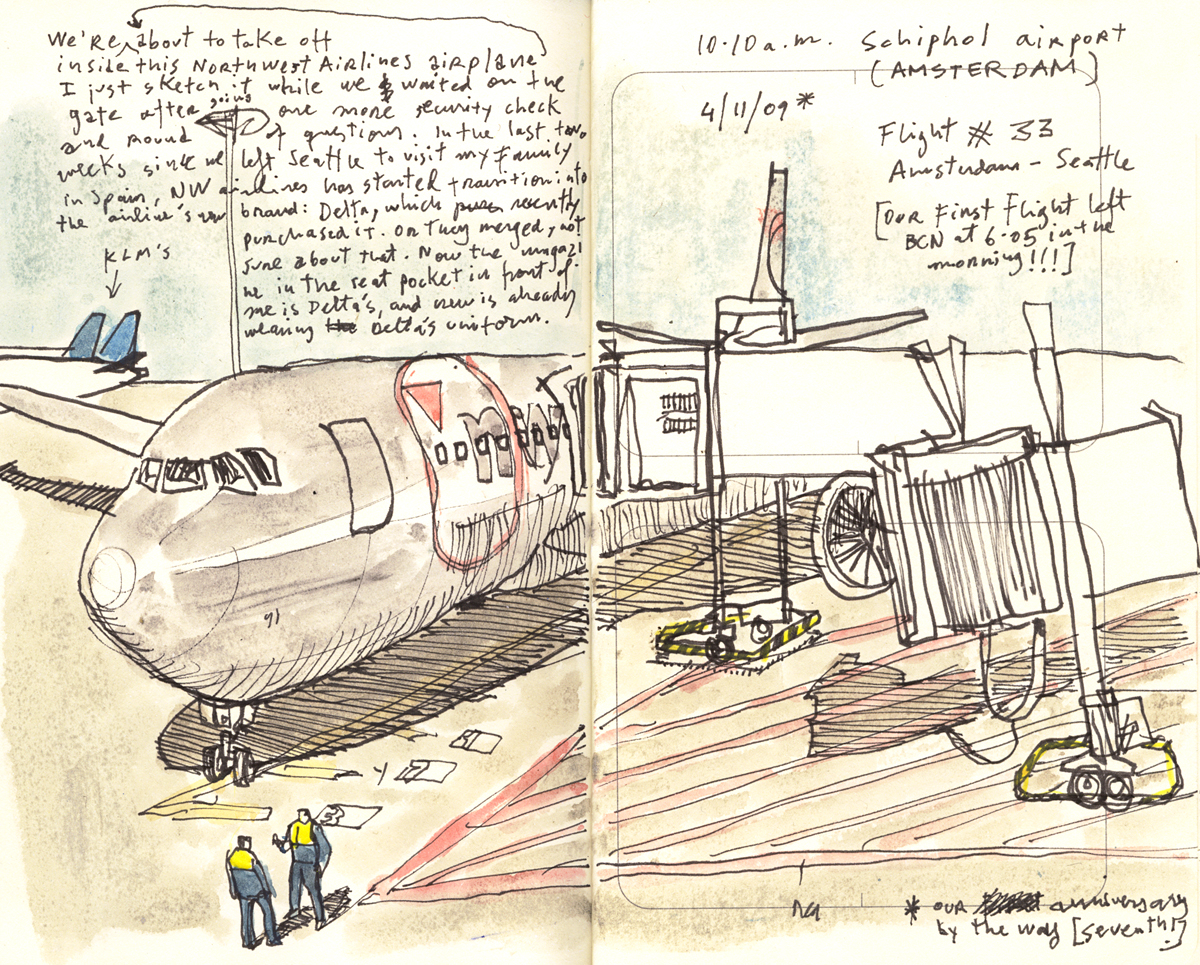 We're about to take off
inside this NorthWest Airlines airplane
I just sketch it while we waited on the
gate after going one more security check
and round of questions. In the last two
weeks since we left Seattle to visit my family
in Spain, NW airlines has started transition into
the airline's new brand: Delta, which recently
purchased it. Or they merged, not
sure about that. Now the magazi
ne in the seat pocket in front of
me is Delta's, and crew is already
wearing the Delta's uniform.
KLM's
nw
91
31
17
33
10.10 a.m. Schiphol airport
(AMSTERDAM)
4/11/09*
Flight # 33
Amsterdam - Seattle
[OUR First Flight left
BCN at 6.05 in the
morning!!!]
* OUR anniversary
by the way [seventh!]